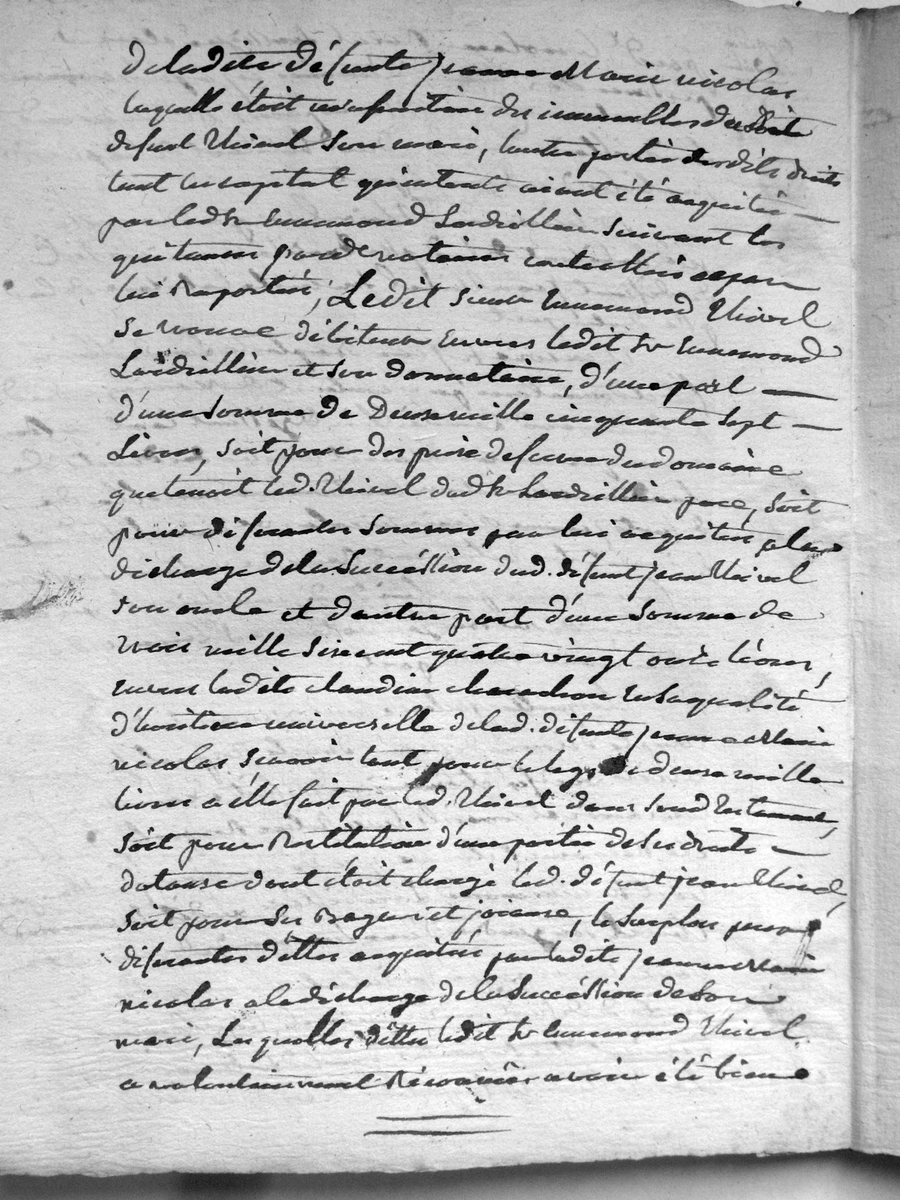 de ladite défunte jeanne Marie nicolas
laquelle étoit usufruitiere des immeubles dudit
defunt Thivel son mari, toutte portée desdits droits
tant en capital qu'interets aiant été acquités
par led. Sr Ennemond Lardillier suivant les
quitances par de notaires controllées
lui Raportées, Ledit sieur Ennemond Thivel
se trouve débiteur envers ledit Sr Ennemond
Lardillier et son donnataire, d'une part
d'une somme de Deux mille cinquante sept
Livres, soit pour des prix de ferme du domaine
que tenoit led. Thivel dud. Sr Lardillier pere, soit
pour diferentes sommes par lui acquitées a la
décharge de la Succéssion dud. défunt jean Thivel
son oncle et d'autre part d'une somme de
trois mille six cent quatre vingt onze livres,
envers ladite claudine charachon en sa qualité
d'héritiere universelle de lad. défunte jeanne Marie
nicolas Scavoir tant pour le legs de deux mille
livres a élle fait par led. Thivel dans sond. testament,
soit pour Restitution d'une partie de ses droits
dotaux dont étoit chargé led. défunt jean Thivel,
soit pour ses Bagues et joiaux, le surplus pour
diferentes déttes acquitées par ladite jeanne Marie
nicolas a la décharge de la Succéssion de son
mari, Lesquelles déttes ledit Sr Ennemond Thivel
a volontairement Réconnû avoir été bien